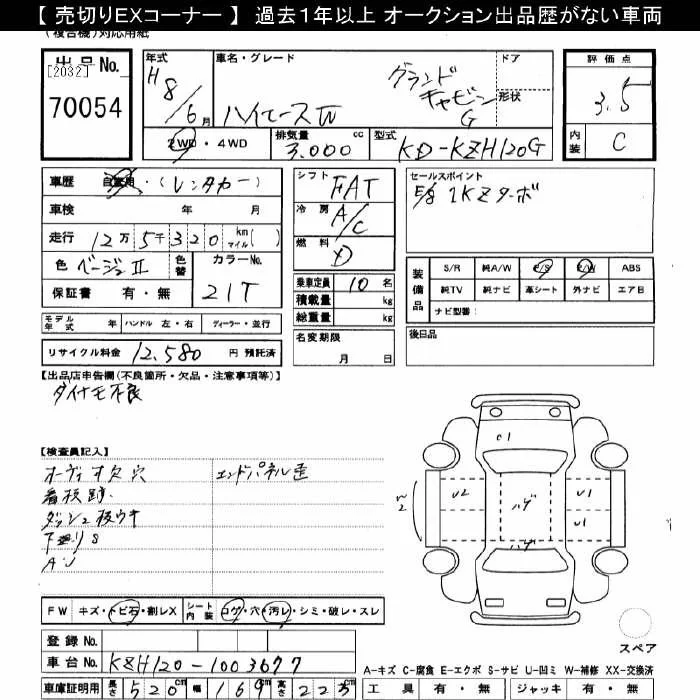 【 売切りEXコーナー 】 過去1年以上 オークション出品歴がない車両
(複合機) 対応用紙
出品No. [2032] 70054
年式 H8/6月
車名・グレード ハイエースW グランドキャビンG
ドア 形状
2WD・4WD 排気量 3.000 cc 型式 KD-KZH120G
評価点 3.5
内装 C
車歴 自家用・(レンタカー)
車検 年 月
走行 12万5千320 km マイル( )
色 ベージュⅡ 色替 カラーNo. 21T
保証書 有・無
モデル年式 年 ハンドル 左・右 ディーラー・並行
リサイクル料金 12,580 円 預託済
シフト FAT
冷房 A/C
燃料 D
乗車定員 10 名
積載量 kg
総重量 kg
名変期限 月 日
セールスポイント
E/g 1KZターボ
装備品 S/R 純A/W P/S P/W ABS
純TV 純ナビ 革シート 外ナビ エアB
ナビ型番:
後日品
【出品店申告欄(不良箇所・欠品・注意事項等)】
ダイナモ不良
【検査員記入】
オーディオ欠 穴 エンドパネル歪
看板跡
ダッシュ板ウキ
下廻りS
C1
W2 U2 ハゲ U1
U1
ハゲ
FW キズ・トビ石・割レX シート内装 コゲ・穴・汚レ・シミ・破レ・スレ
登録No.
車台No. KZH120-1003677
車庫証明用 長さ 520 cm 幅 169 cm 高さ 223 cm
スペア
A-キズ C-腐食 E-エクボ S-サビ U-凹ミ W-補修 XX-交換済
工具 有・無 ジャッキ 有・無